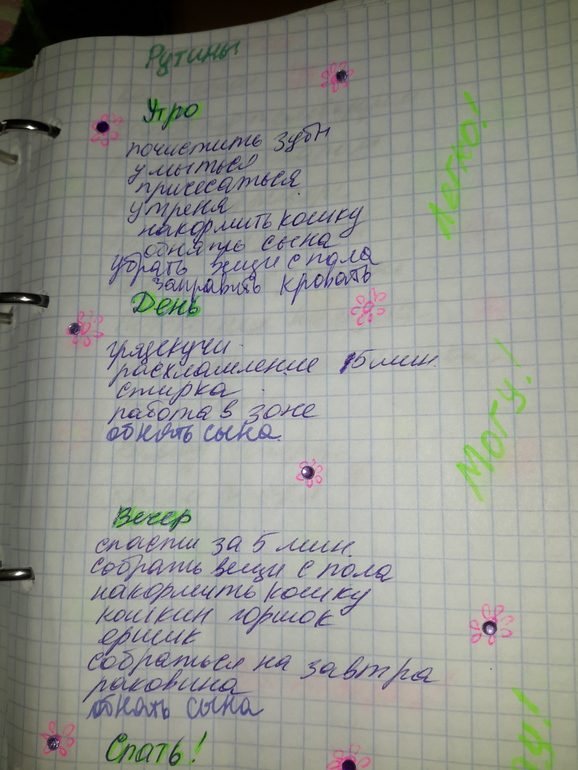 Рутины
Утро
почистить зубы
умыться
причесаться
утреня
накормить кошку
обнять сына
убрать вещи с пола
заправить кровать
День
грязнучи
расхламление 15 мин.
стирка
работа в зоне
обнять сына
Вечер
спасти за 5 мин
собрать вещи с пола
накормить кошку
кошкин горшок
ершик
собраться на завтра
раковина
обнять сына
Спать!
Легко!
Могу!